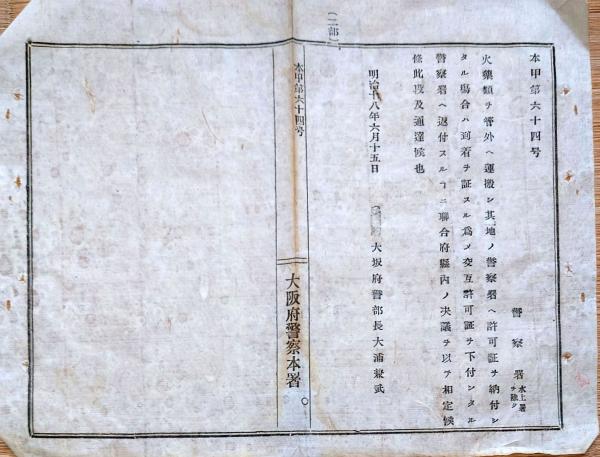 本甲第六十四号
警察署 水上署ヲ除ク
火藥類ヲ管外ヘ運搬シ其地ノ警察署ヘ許可証ヲ納付シ
タル場合ハ到着ヲ証スル爲メ交互許可証ヲ下付シタル
警察署ヘ返付スルヿニ聯合府縣内ノ决議ヲ以テ相定候
條此段及通達候也
明治十八年六月十五日
大坂府警部長大浦兼武
(二部)
本甲第六十四号
大阪府警察本署